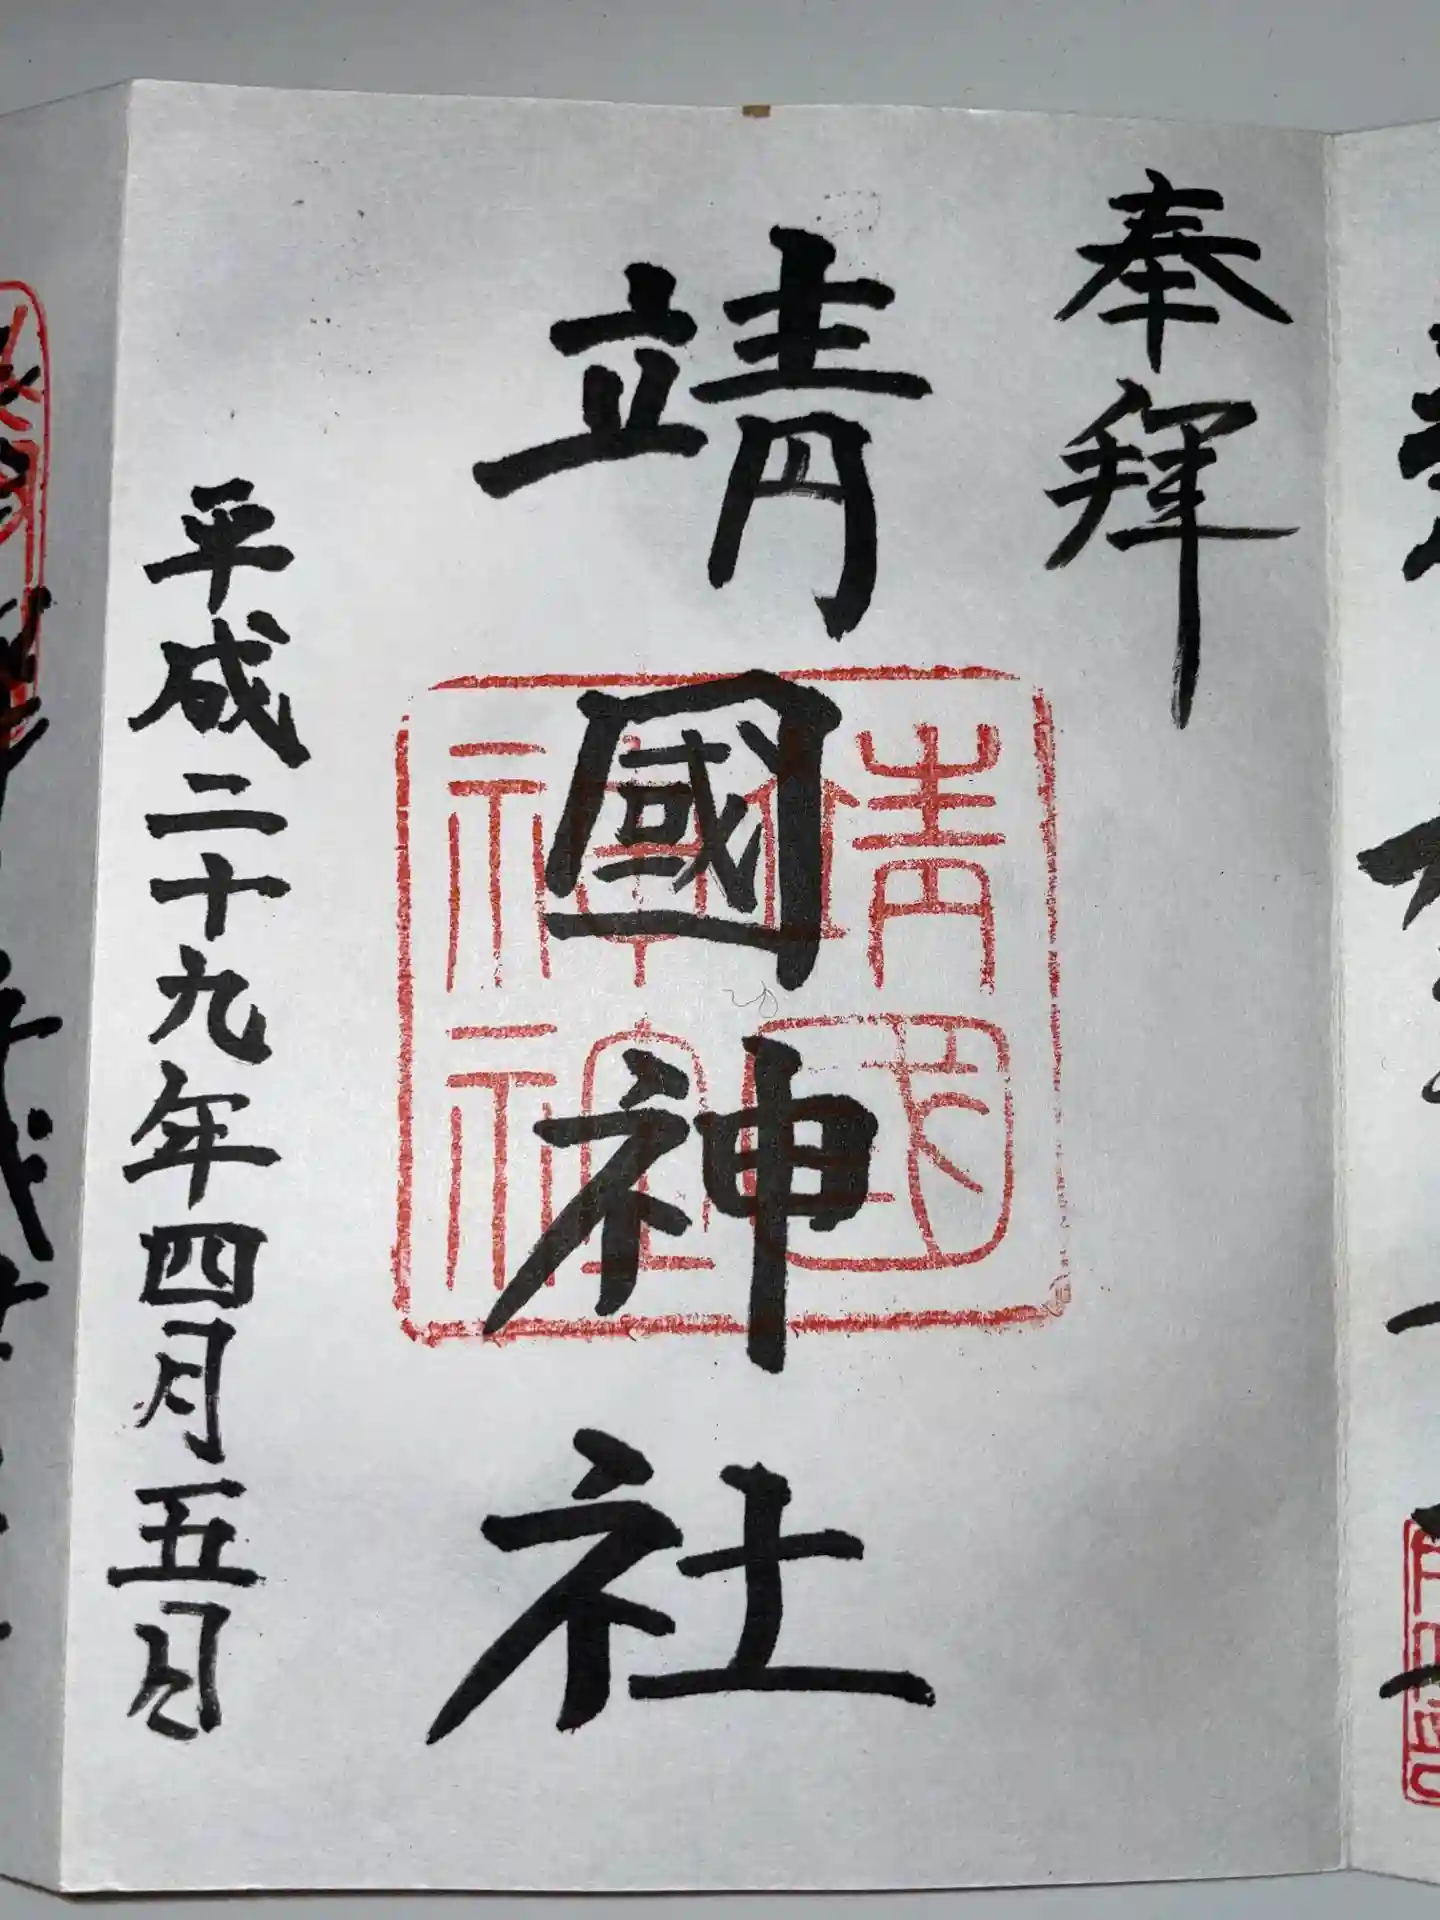 奉拝
靖國神社
靖國
神社
平成二十九年四月五日